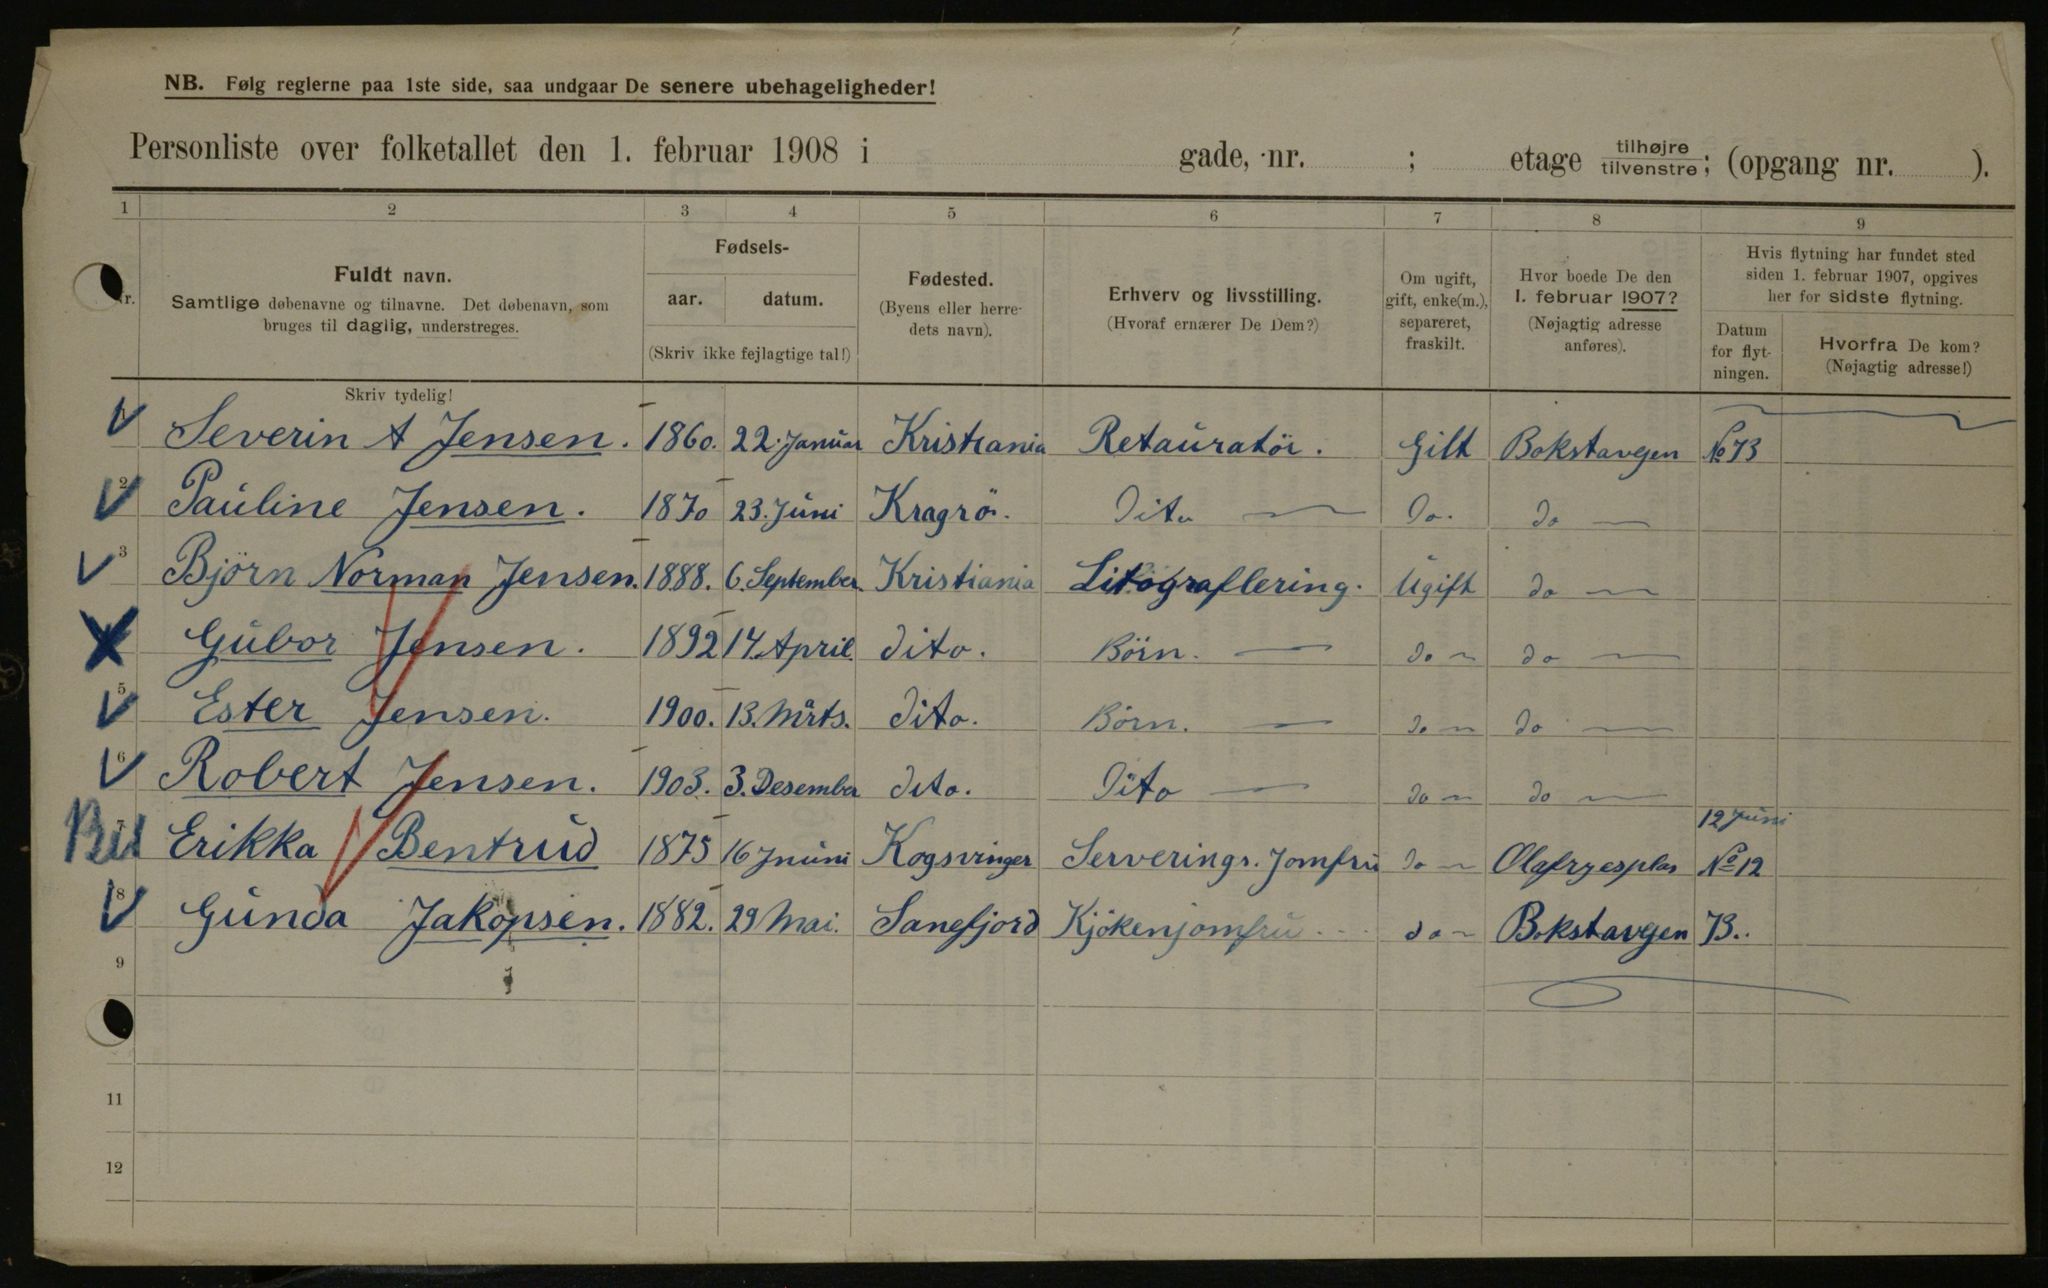 NB. Følg reglerne paa 1ste side, saa undgaar De senere ubehageligheder!
Personliste over folketallet den 1. februar 1908 i gade, nr. ; etage tilhøjre tilvenstre; (opgang nr. ).
1 2 3 4 5 6 7 8 9
Nr.
Fuldt navn.
Samtlige døbenavne og tilnavne. Det døbenavn, som
bruges til daglig, understreges.
Skriv tydelig!
Fødsels-
aar. datum.
(Skriv ikke fejlagtige tal!)
Fødested.
(Byens eller herre-
dets navn).
Erhverv og livsstilling.
(Hvoraf ernærer De Dem?)
Om ugift,
gift, enke(m.),
separeret,
fraskilt.
Hvor boede De den
1. februar 1907?
(Nøjagtig adresse
anføres).
Hvis flytning har fundet sted
siden 1. februar 1907, opgives
her for sidste flytning.
Datum
for flyt-
ningen.
Hvorfra De kom?
(Nøjagtig adresse!)
1 Severin A Jensen. 1860. 22. Januar Kristiania Retauratör. Gift Bokstavgen No 73
2 Pauline Jensen. 1870 23. Juni Kragrö. Dito Do. do
3 Björn Norman Jensen. 1888. 6. September. Kristiania Litograflering. Ugift do
Gubor Jensen. 1892 14. April. dito. Börn. do do
5 Ester Jensen. 1900. 13. Mårts. dito. Börn. do do
6 Robert Jensen. 1903. 3. Desember dito. Dito do do
12 Juni
7 Erikka Bentrud 1875 16 Jnuni Kogsvinger Serverings. Jomfru do Olafryesplas No 12
8 Gunda Jakopsen. 1882. 29 Mai. Sanefjord Kjökenjomfru do Bokstavgen 73..
9
11
12